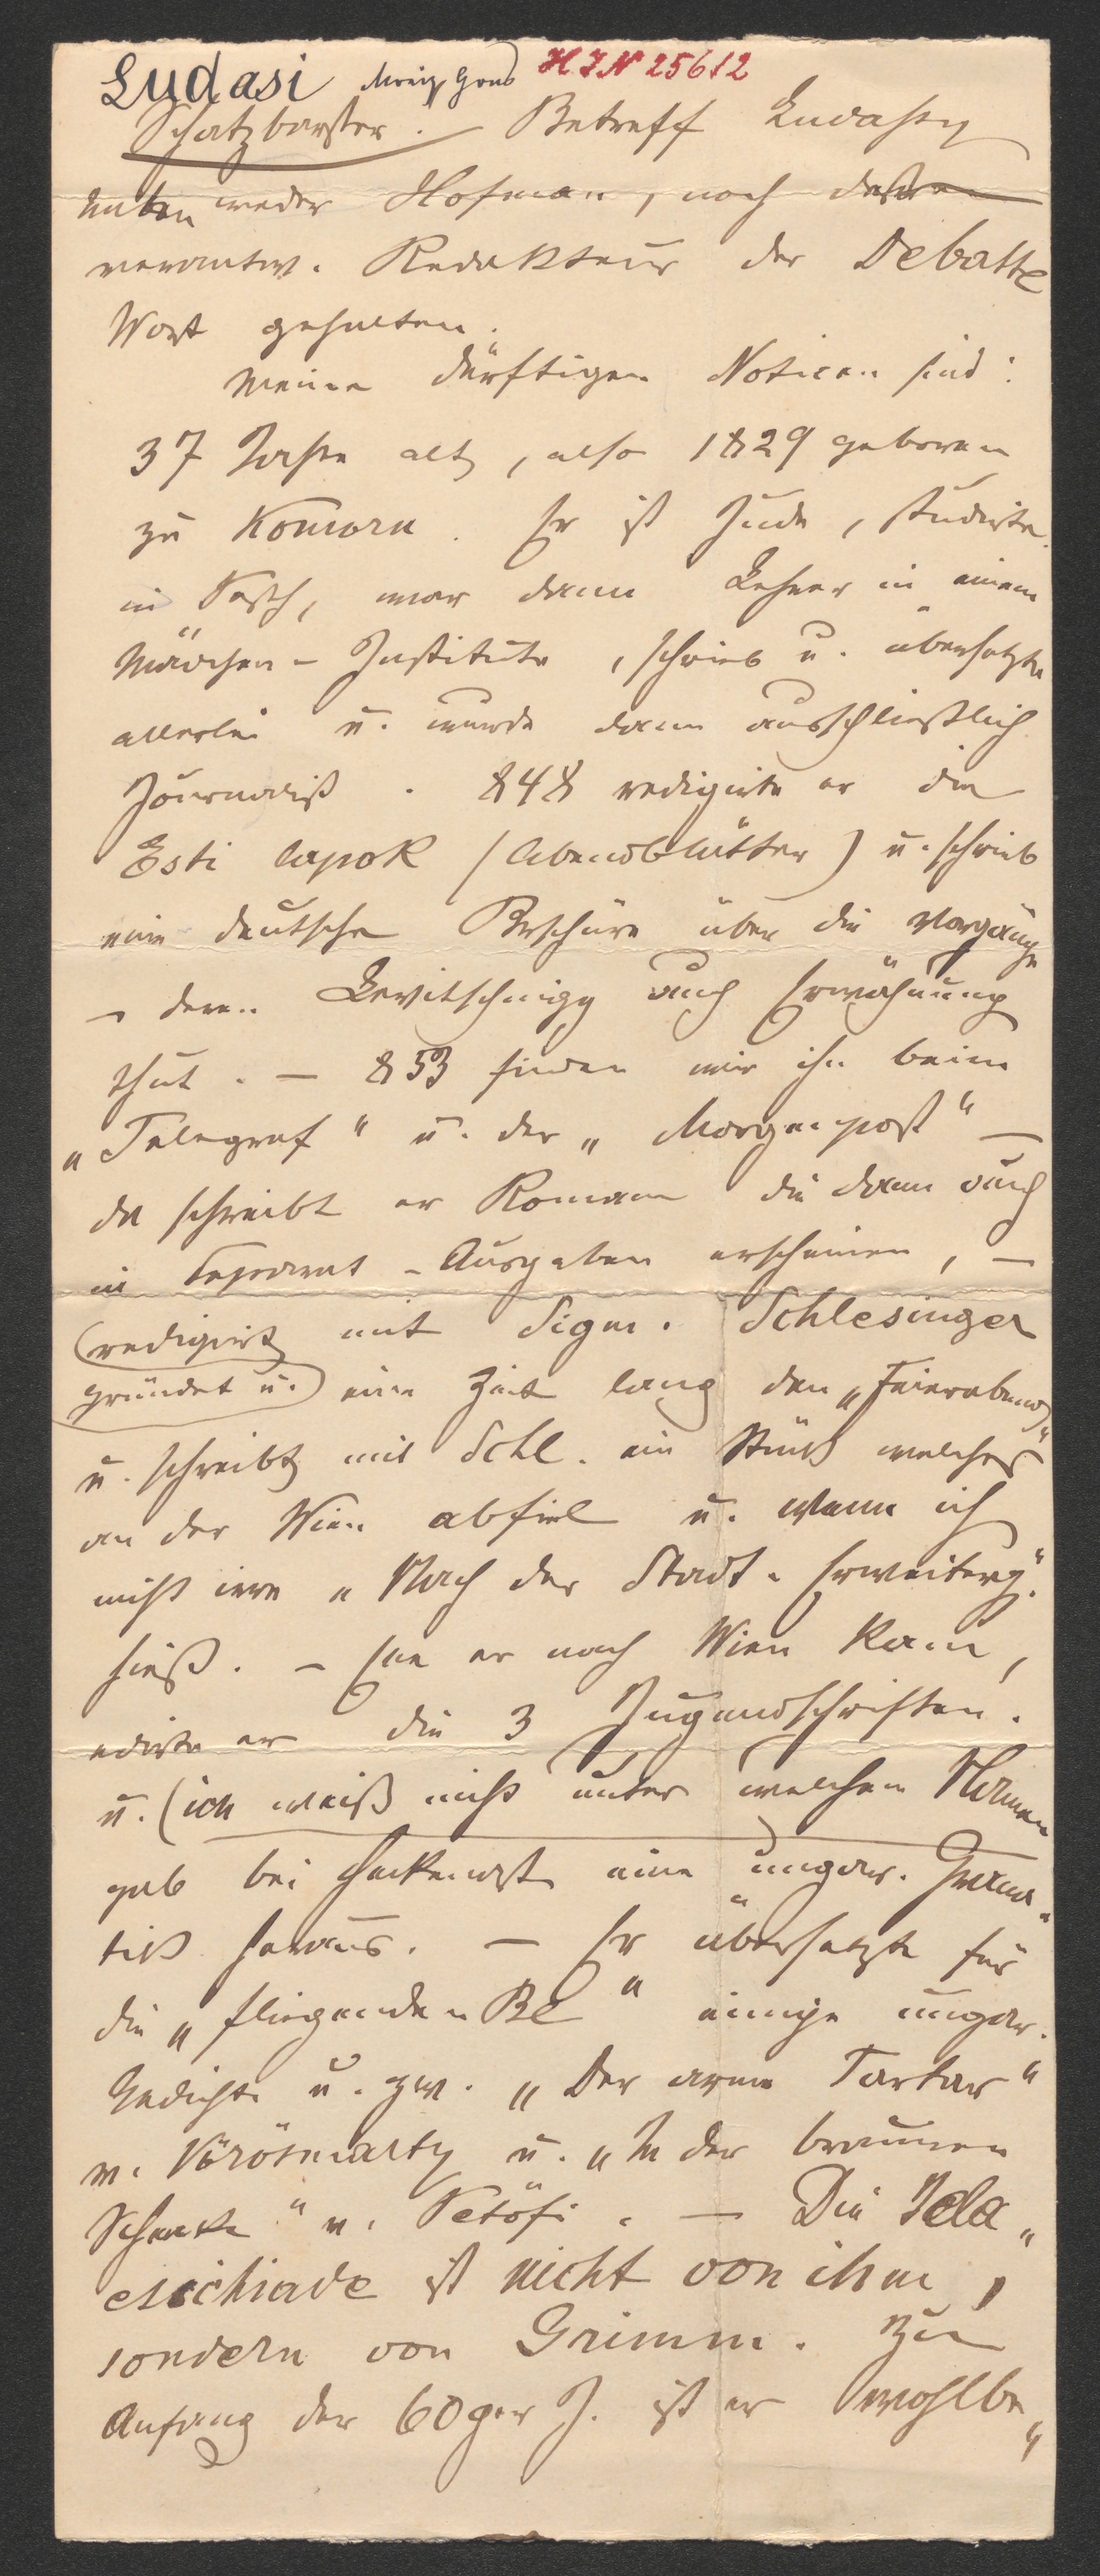 Ludasi Moriz Gans H I N 25612
Schatzbarster. – Betreff Ludassy
haben weder Hofman, noch dessen
verantw. Redakteur der Debatte
Wort gehalten.
Meine dürftigen Notizen sind:
37 Jahre alt, also 1829 geboren
zu Komorn. Er ist Jude, studirte
in Pesth, war dann Lehrer in einem
Mädchen-Institute, schrieb u. übersetzte
allerlei u. wurde dann ausschließlich
Journalist. 848 redigirte er die
Esti lapok (Abendblätter) u. schrieb
eine deutsche Broschüre über die Vorgänge
– deren Levitschnigg auch Erwähnung
thut. – 853 finden wir ihn beim
„Telegraf“ u. der „Morgenpost“ –
da schreibt er Romane die dann auch
in Separat-Ausgaben erscheinen, –
(redigirt mit Sigm. Schlesinger
gründet u.) eine Zeit lang den „Feierabend“
u. schreibt mit Schl. ein Stück welches
an der Wien abfiel u. wenn ich
nicht irre „Nach der Stadt-Erweiterg.“
hieß. – Ehe er nach Wien kam,
edirte er die 3 Jugendschriften.
u. (ich weiß nicht unter welchem Namen
gab bei Heckenast eine ungar. Gram-
tik heraus. – Er übersetzte für
die „fliegenden Bl“ einige ungar.
Gedichte u. zw. „Der arme Tartar“
v. Vörösmarty u. „In der braunen
Schenke“ v. Petöfi. – Die Jela„
esichiade ist nicht von ihm,
sondern von Grimm. Zu
Anfang der 60ger J. ist er wohlbe„